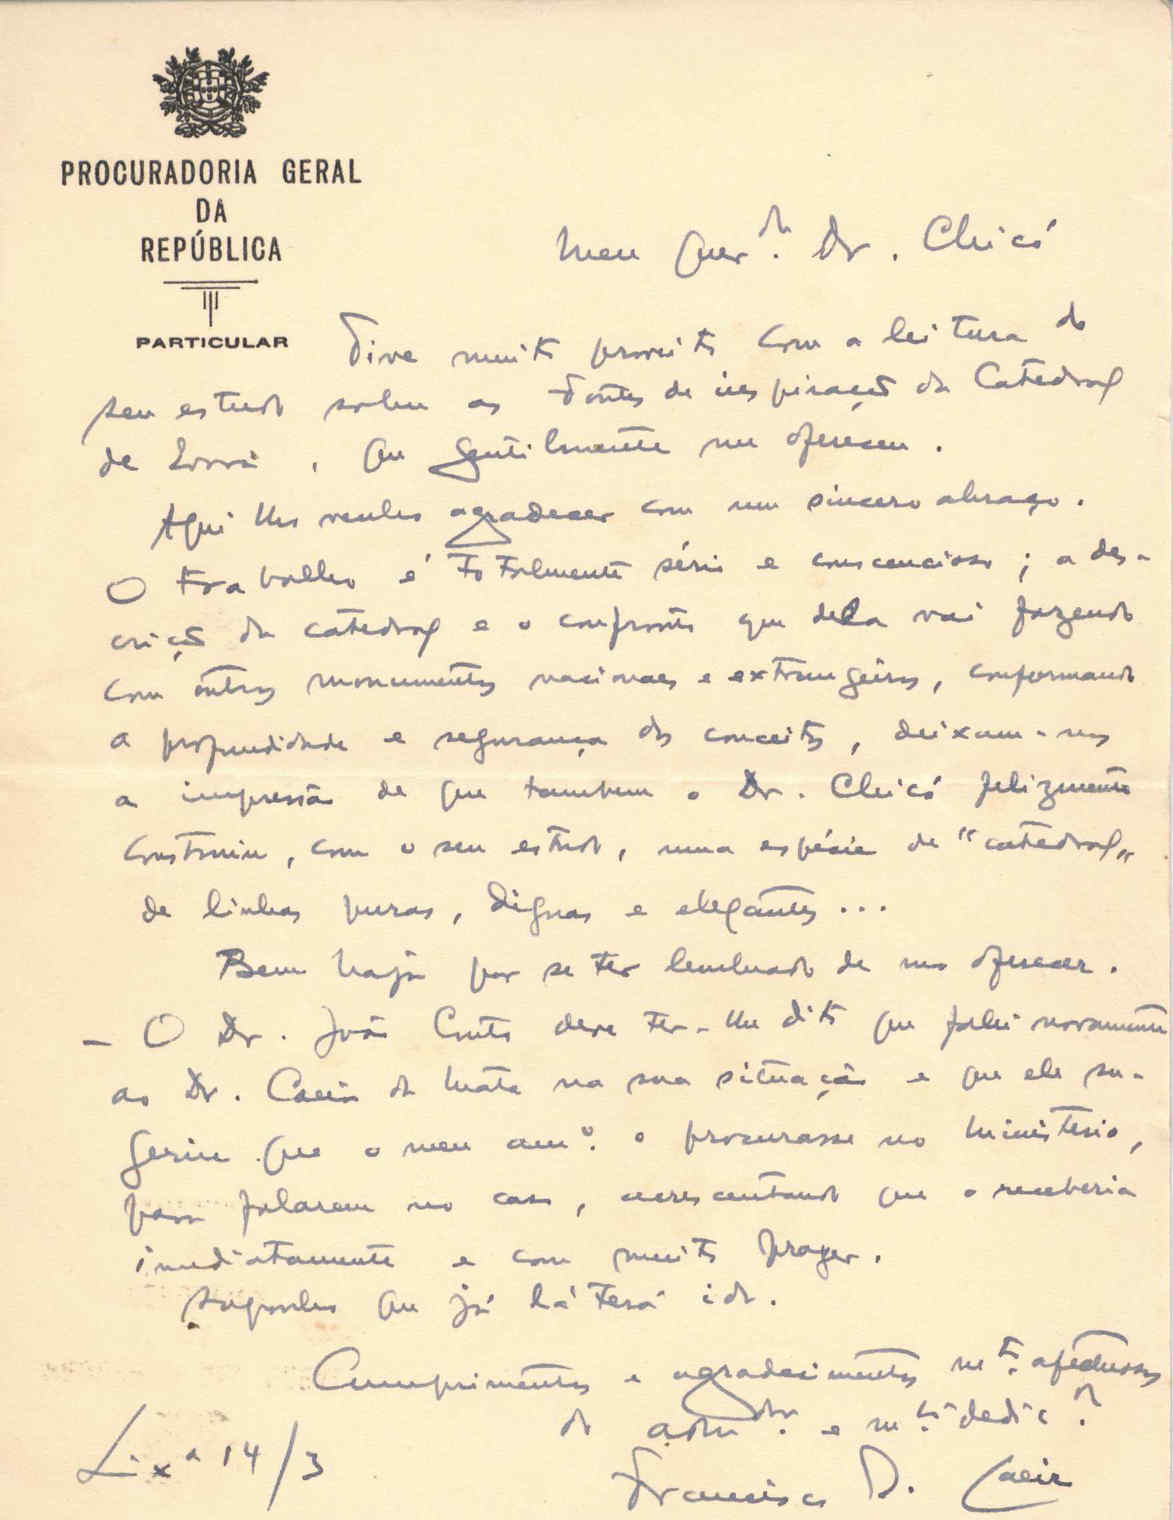 PROCURADORIA GERAL
DA
REPÚBLICA
PARTICULAR
Meu Quer.do Dr. Chicó
Tive muito proveito com a leitura do
seu estudo sobre as fontes de inspiração da Catedral
de Evora, que gentilmente me ofereceu.
Aqui lhos venho agradecer com um sincero abraço.
O trabalho é totalmente sério e consciencioso; a des-
crição da catedral e o confronto que dela vai fazendo
com outros monumentos nacionaes e extrangeiros, conformando
a profundidade e segurança dos conceitos, deixam-nos
a impressão de que tambem o Dr. Chicó felizmente
construiu, com o seu estudo, uma espécie de "catedral"
de linhas puras, dignas e elegantes...
Bem haja por se ter lembrado de mo oferecer.
- O Dr. João Couto deve ter-lhe dito que falei novamente
ao Dr. Caeiro da Mata na sua situação e que ele su-
geriu que o meu am.o o procurasse no Ministerio,
para falarem no caso, acrescentando que o receberia
imediatamente e com muito prazer.
Suponho que já lá terá ido.
Cumprimentos e agradecimentos m.to afectuosos
do adm.dor e m.to dedic.do
Francisco D. Caeiro
Lix.a 14/3